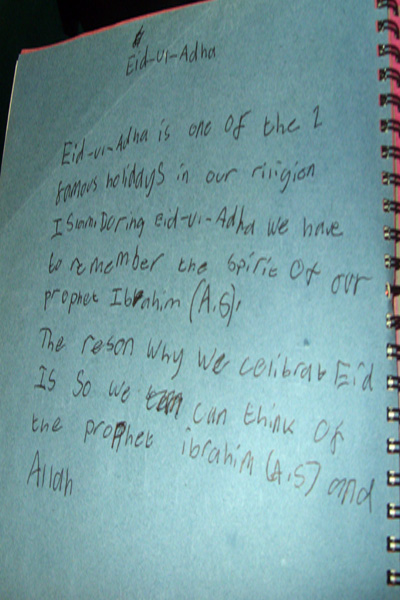 Eid-ul-Adha
Eid-ul-Adha is one of the 2
famous holidays in our riligion
Islam. During eid-ul-Adha we have
to remember the Spirit of our
prophet Ibrahim (A.S).
The reson why we celibrat Eid
Is So we can think of
the prophet ibrahim (A.S) and
Allah